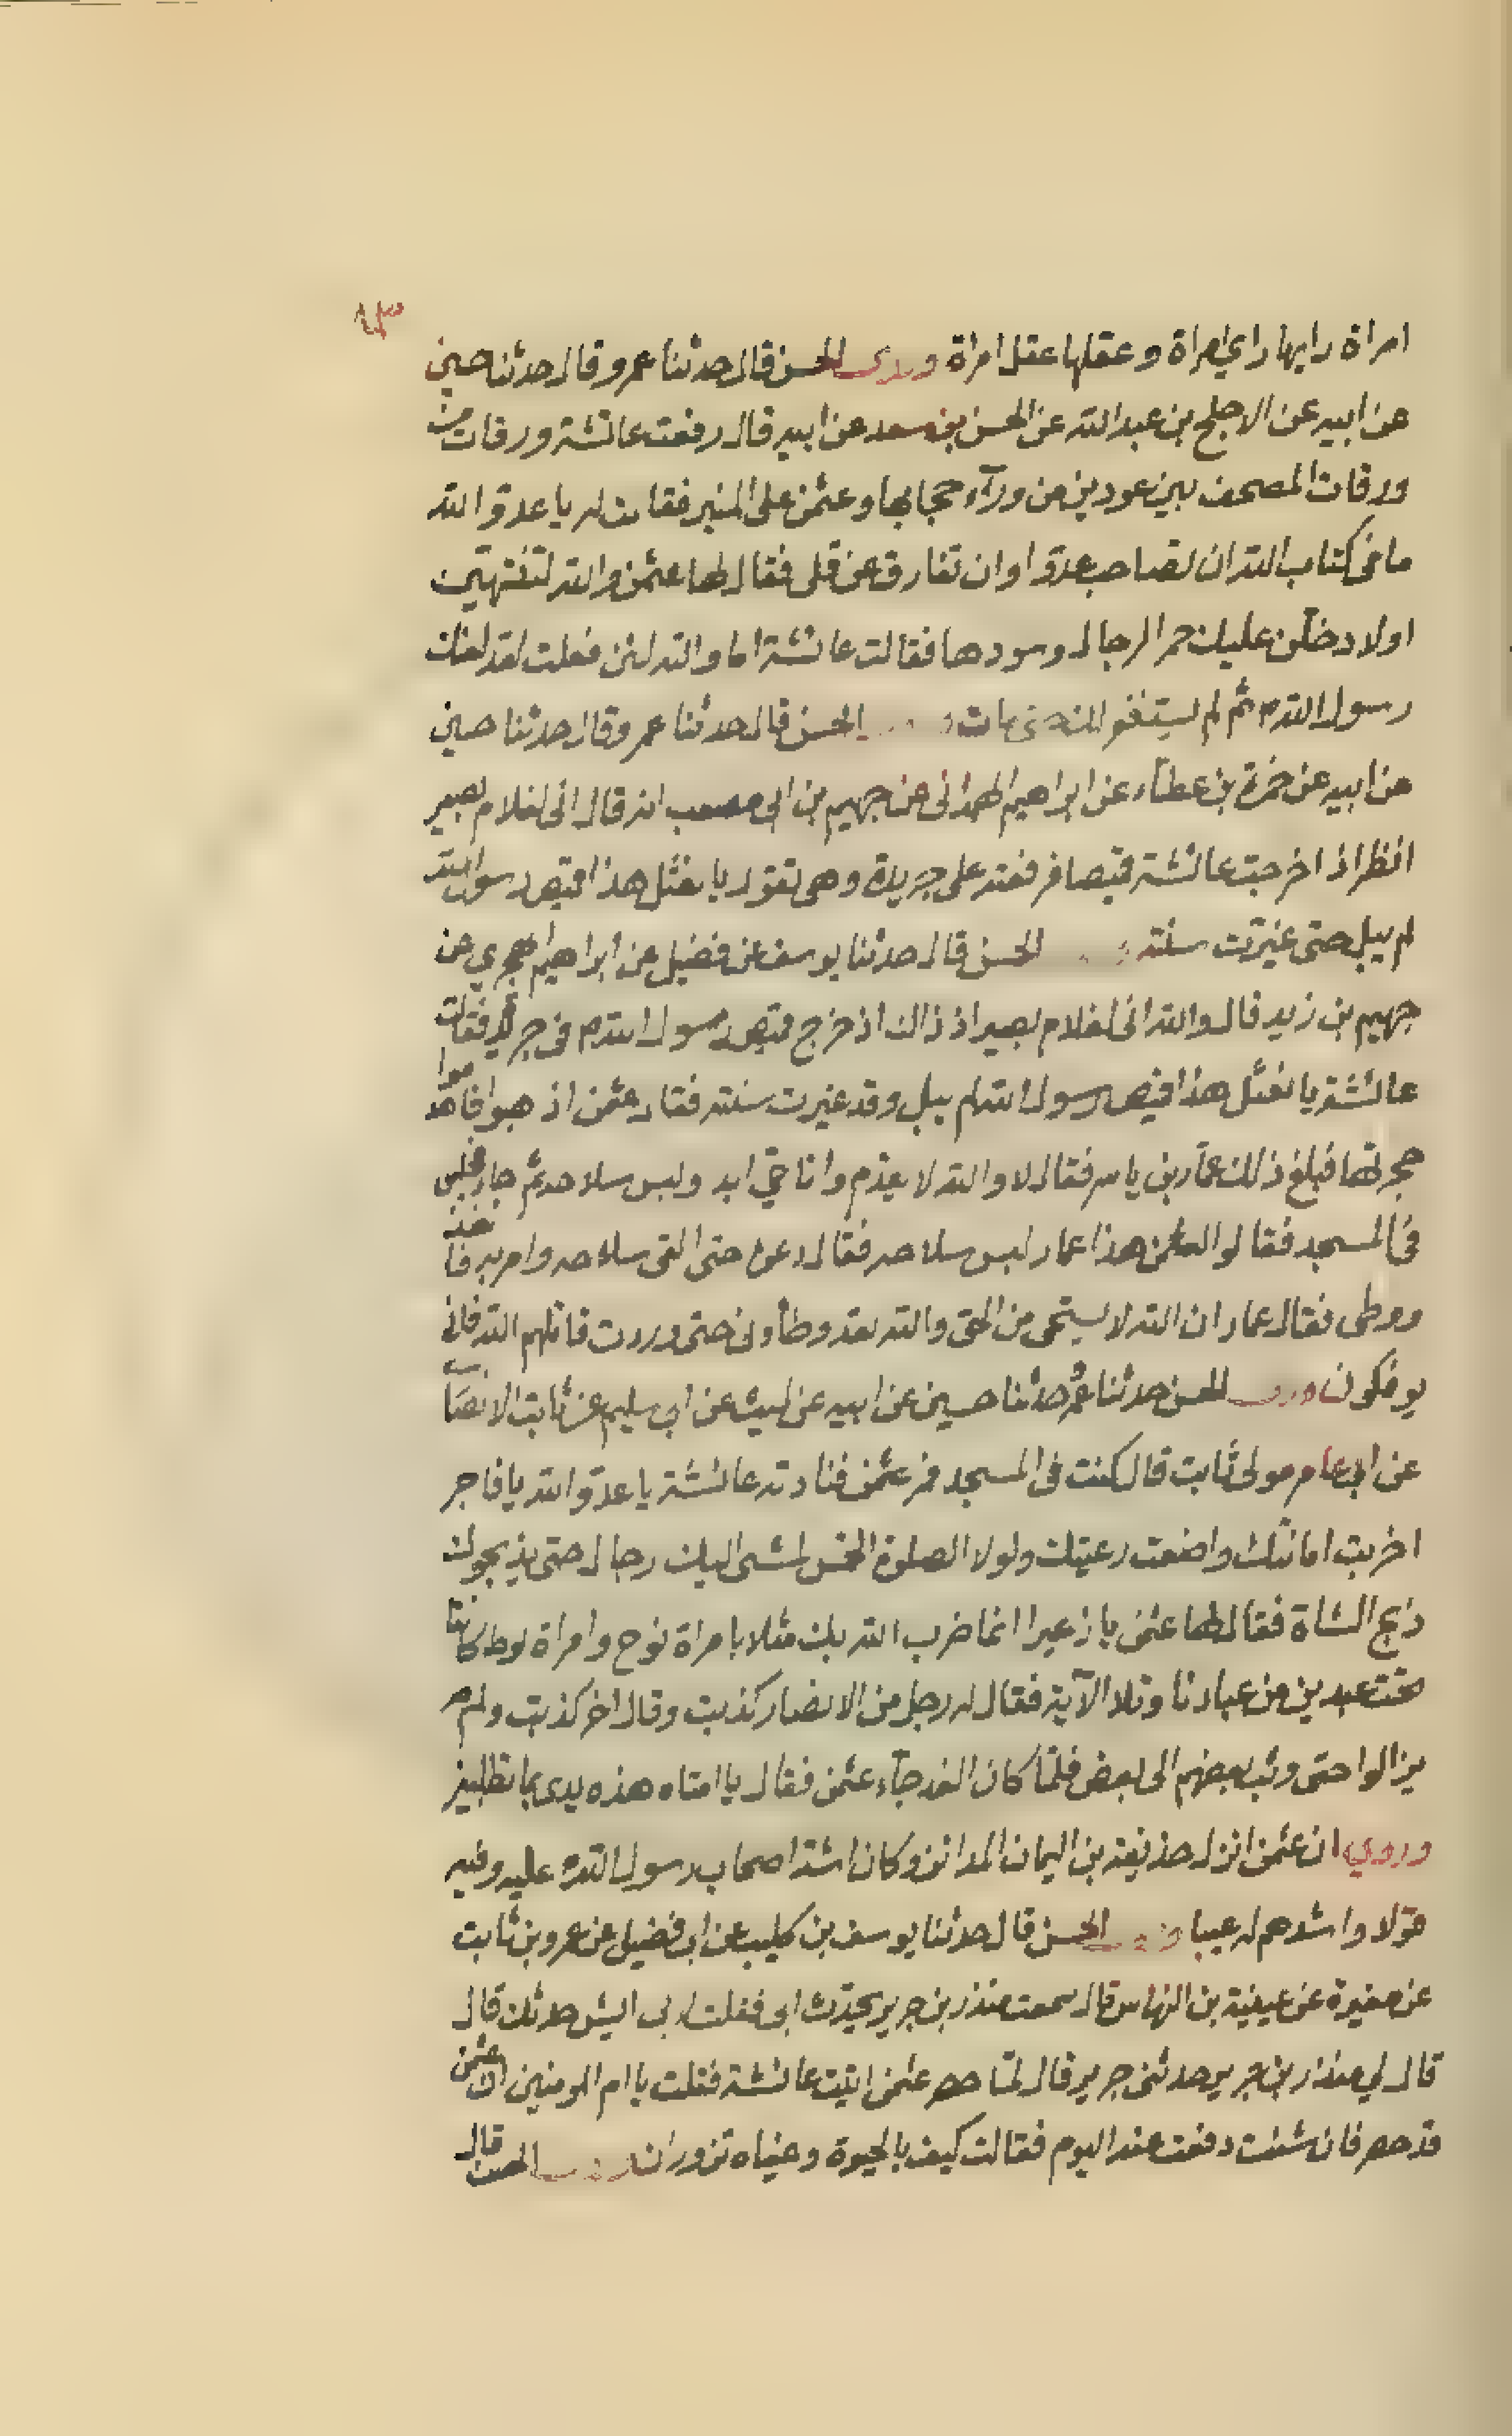 ٨٣
امراة رايها راي امراة وعقلها عقل امراة وروى الحسن قال حدثنا عمرو قال حدثنا حسين
عن ابيه عن الاجلح بن عبد الله عن الحسن بن سعد عن ابيه قال رفعت عائشة ورقات من
ورقات المصحف بين عودين من ورآء حجابها وعثمن على المنبر فقالت له يا عدو الله
ما في كتاب الله ان تصاحب عدوا وان تفارق عن قلى فقال لها عثمن والله لتنتهين
اولادخلن عليك حمر الرجال وسودها فقالت عائشة اما والله لئن فعلت لقد لعنك
رسول الله ثم لم يستغفر لك حتى مات الحسن قال حدثنا عمرو قال حدثنا حسين
عن ابيه عن حمزة بن عطآء عن ابراهيم الهمداني عن جهيم بن ابي مصعب انه قال اني لغلام بصير
انظر اذ اخرجت عائشة قميصا فرفعته على جريدة وهى تقول يا نعثل هذا قميص رسول الله
لم يبل حتى غيرت سنته الحسن قال حدثنا يوسف عن فضيل عن ابراهيم الهجري عن
جهيم بن زيد قال والله اني لغلام بصير اذ ذاك اذ خرج قميص رسول الله م في جريد فقالت
عائشة يا نعثل هذا قميص رسول الله لم يبل وقد غيرت سنته فقال عثمن اذهبوا فاهدموا
حجرتها فبلغ ذلك عمار بن ياسر فقال لا والله لا يهدم وانا حي ابد ولبس سلاحه ثم جاء فجلس
في المسجد فقالوا لعثمن هذا عمار لبس سلاحه فقال دعوه حتى القى سلاحه وامر به فاخذ
ووطى فقال عمار ان الله لا يستحى من الحق والله لقد وطأوني حتى وردت قاتلهم الله فانى
يوفكون وروى الحسن حدثنا عمرو حدثنا حسين عن ابيه عن ليث عن ابي سليم عن ثابت الانصا
عن ابي عامر مولى ثابت قال كنت في المسجد فمر عثمن فنادته عائشة يا عدو الله يا فاجر
اخربت امانتك واضعت رعيتك ولولا الصلوة الخمس لمشى اليك رجال حتى يذبحوك
ذبح الشاة فقال لها عثمن يا زعيرا انما ضرب الله بك مثلا بامراة نوح وامراة لوط كانتا
تحت عبدين من عبادنا وتلا الآية فقال له رجل من الانصار كذبت وقال اخر كذبت ولم
يزالوا حتى وثب بعضهم الى بعض فلما كان الغد جآء عثمن فقال يا امتاه هذه يدى بما تطلبين
وروي ان عثمن انزل حذيفة بن اليمان المدائن وكان اشد اصحاب رسول الله عليه وفيه
قولا واشدهم له عيبا الحسن قال حدثنا يوسف بن كليب عن ابي فضيل عن عمرو بن ثابت
عن مغيرة عن عيينة بن النهاس قال سمعت منذر بن جرير يحدث ابي فقلت لابي ايش حدثك قال
قال لي منذر بن جرير حدثني جرير قال لما حصر عثمن اتيت عائشة فقلت يا ام المومنين ان عثمن
قد حصر فان شئت دفعت عنه اليوم فقالت كيف بالحيوة وعيناه تزوران الحسن قال